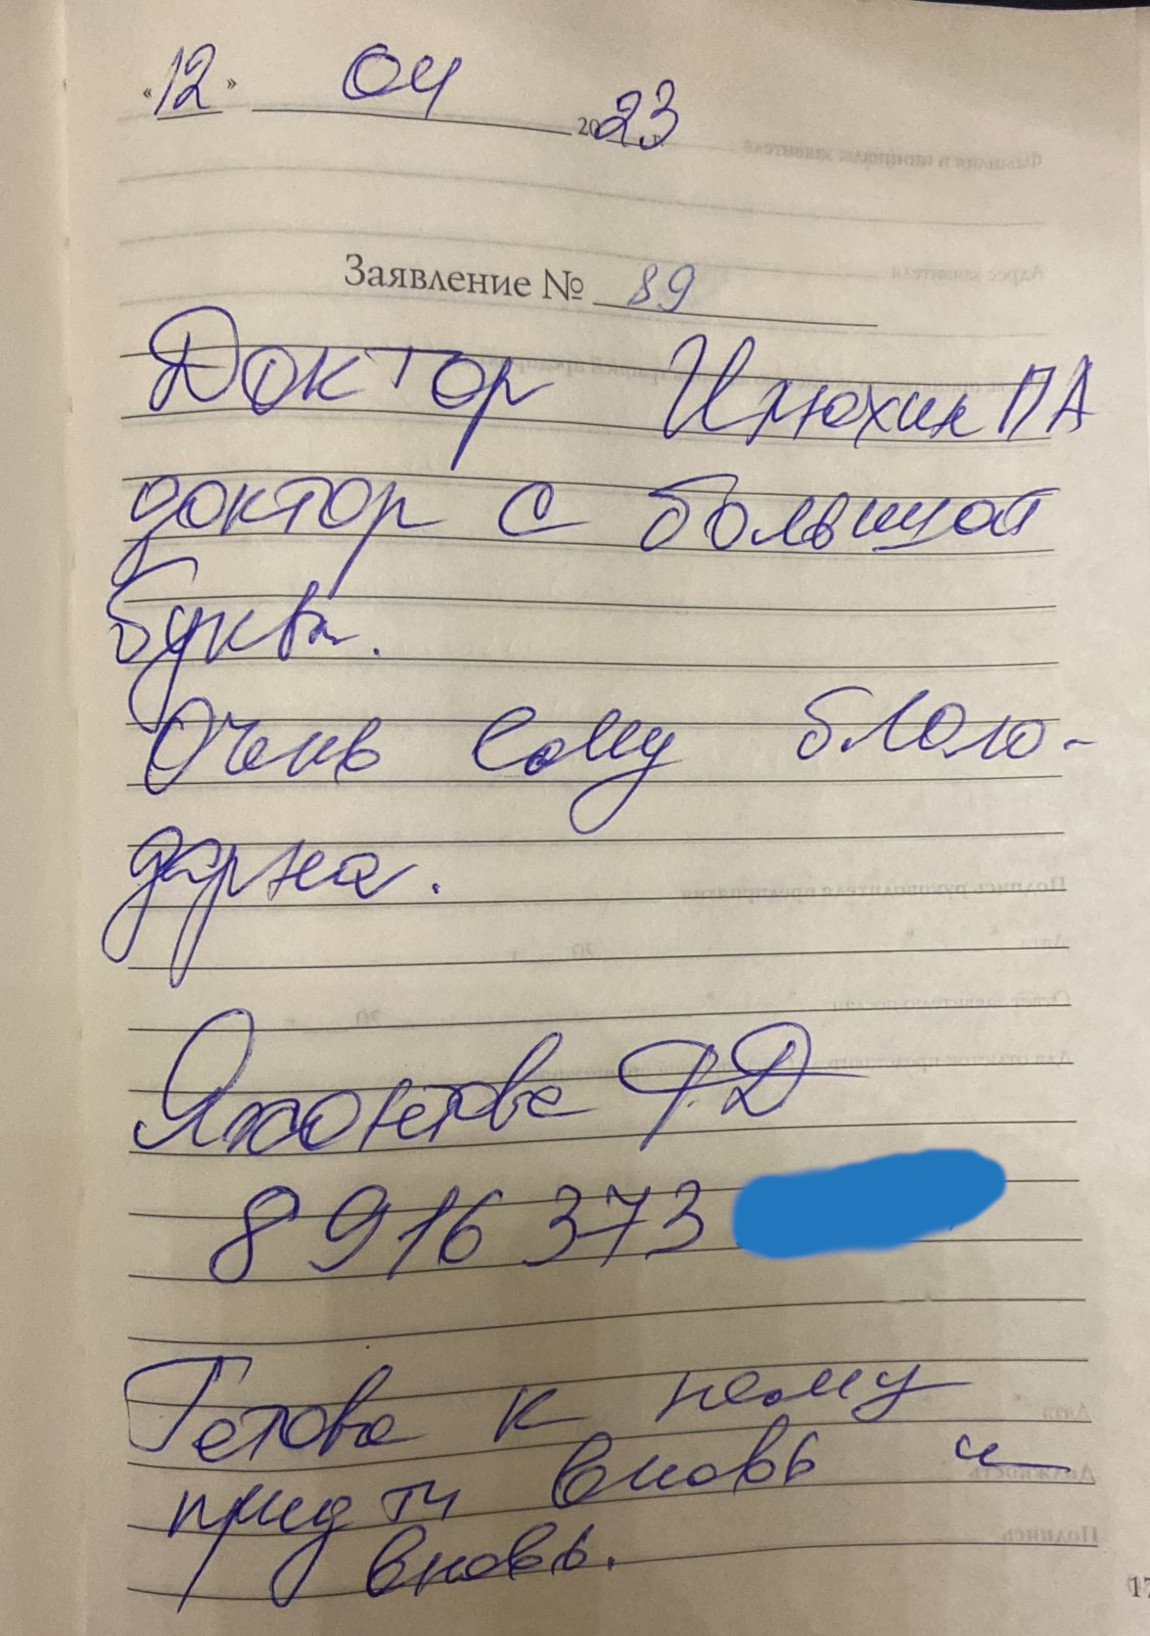 «12» 04 2023 г.
Заявление № 89
Доктор Илюхин ПА
доктор с большой
буквы.
Очень ему благо-
дарна.
Яхонтова Г.Д
8 916 373
Готова к нему
придти вновь и
вновь.
17